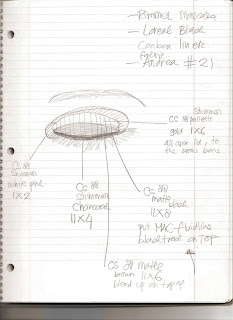 - Rimmel Mascara
- Loreal Black
Carbon liner
- Andrea #21
Shimmer
CS 88 pallette
gold 1X6
all over lid, to
the brow bone
CS 88
Shimmer
white pink
1X2
CS 88
Shimmer
Charcoal
11X4
CS 88
matte
black
11X8
put MAC fluidline
blacktrack on top
CS 88 matte
brown 11X6
blend up on top of